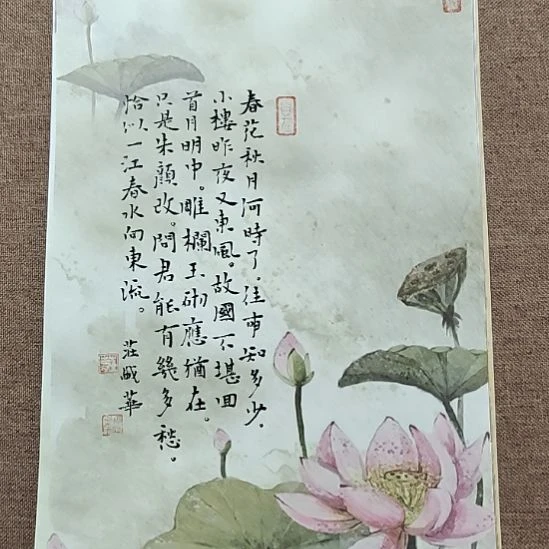 春花秋月何時了。往事知多少。
小樓昨夜又東風。故國不堪回
首月明中。雕欄玉砌應猶在。
只是朱顏改。問君能有幾多愁。
恰似一江春水向東流。
莊成華